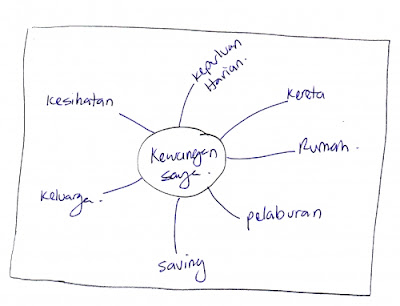 Keperluan
Harian.
Kesihatan
Kereta
Kewangan
saya.
Rumah.
Keluarga.
pelaburan
saving